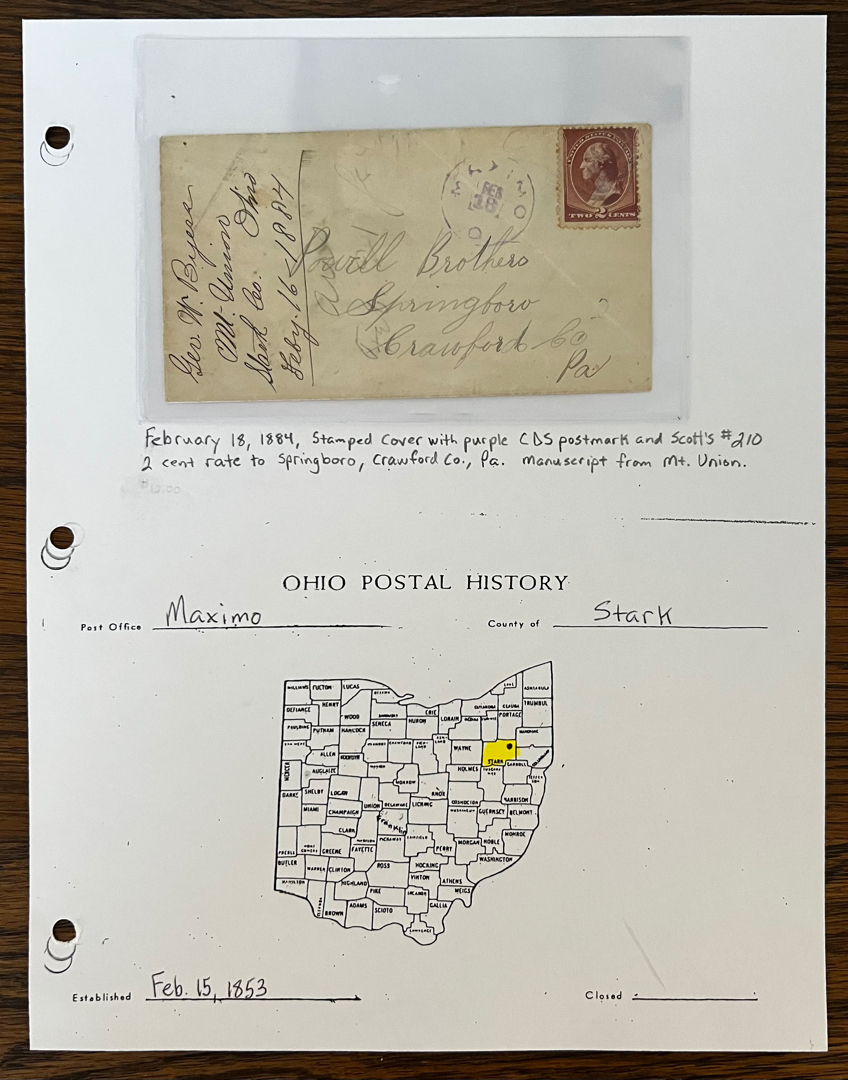 Geo. W. Byers
Mt. Union
Stark Co. Ohio
Feby. 16 - 1884
FEB
18
O
TWO 2 CENTS
Powell Brothers
Springboro
Crawford Co
Pa
February 18, 1884, Stamped Cover with purple CDS postmark and Scott's #210
2 cent rate to Springboro, Crawford Co., Pa. manuscript from Mt. Union.
OHIO POSTAL HISTORY
Post Office Maximo County of Stark
WILLIAMS FULTON LUCAS ASHTABULA
DEFIANCE HENRY WOOD ERIE LORAIN GEAUGA TRUMBUL
SENECA HURON PORTAGE
PAULDING PUTNAM HANCOCK
ALLEN WAYNE STARK
MERCER AUGLAIZE HOLMES CARROLL COLUMBIANA
MORROW KNOX
DARKE SHELBY LOGAN UNION DELAWARE LICKING COSHOCTON HARRISON
MIAMI CHAMPAIGN Franklin GUERNSEY BELMONT
CLARK PICKAWAY PERRY MORGAN NOBLE MONROE
PREBLE GREENE FAYETTE WASHINGTON
BUTLER WARREN CLINTON ROSS HOCKING
HAMILTON HIGHLAND PIKE VINTON ATHENS MEIGS
BROWN ADAMS SCIOTO GALLIA
Established Feb. 15, 1853 Closed